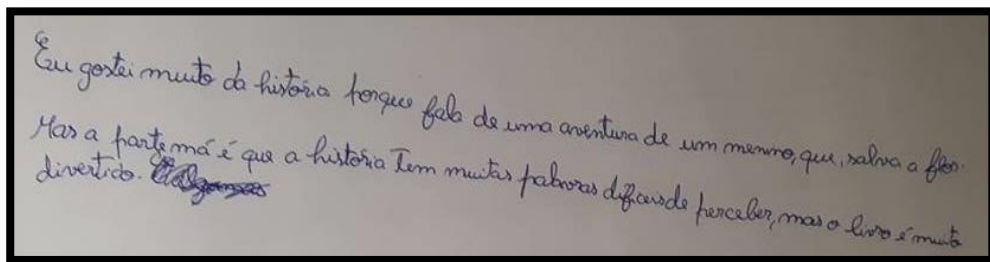 Eu gostei muito da história porque fala de uma aventura de um menino, que, salva a flor.
Mas a parte má é que a história tem muitas palavras difíceis de perceber, mas o livro é muito
divertido.